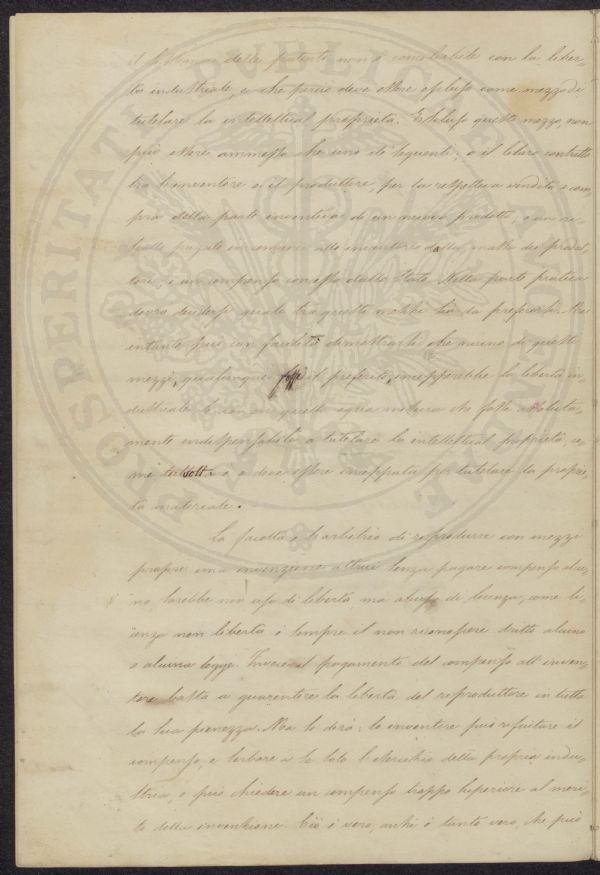 il sistema delle patenti non è conciliabile con la liber-
tà industriale, e che perciò deve essere escluso come mezzo di
tutelare la intellettual proprietà. Escluso questo mezzo, non
può essere ammesso che uno de' seguenti; o il libero contratto
tra l'inventore e il produttore, per la rispettiva vendita e com-
pra della parte inventiva di un nuovo prodotto, o un
pagato in comune allo inventore dalla de' produt-
tori, o un compenso concesso dallo Stato. Nella parte pratica
dovrà quale tra questi mezzi sia da preferirsi. Ma
intanto può con facilità dimostrarsi che niuno di questi
mezzi, qualunque fosse il preferito, incepperebbe la libertà in-
dustriale se non in quella misura che fosse assoluta-
mente indispensabile a tutelare la intellettual proprietà, co-
me è e deve essere inceppata per tutelare la proprie-
tà materiale.
La facoltà o l'arbitrio di riprodurre con mezzi
propri una invenzione altrui senza pagare compenso alcu-
no, sarebbe non uso di libertà ma abuso di licenza, come li-
cenza non libertà è sempre il non riconoscere dritto alcuno
o alcuna legge. Invece il pagamento del compenso all'inven-
tore basta a guarentire la libertà del riproduttore in tutta
la sua pienezza. Ma si dirà: lo inventore può rifiutare il
compenso, e serbare a se solo l'esercizio della propria indu-
stria, o può chiedere un compenso troppo superiore al meri-
to della invenzione. Ciò è vero, anzi è tanto vero, che può
PROSPERITATI PUBLICAE